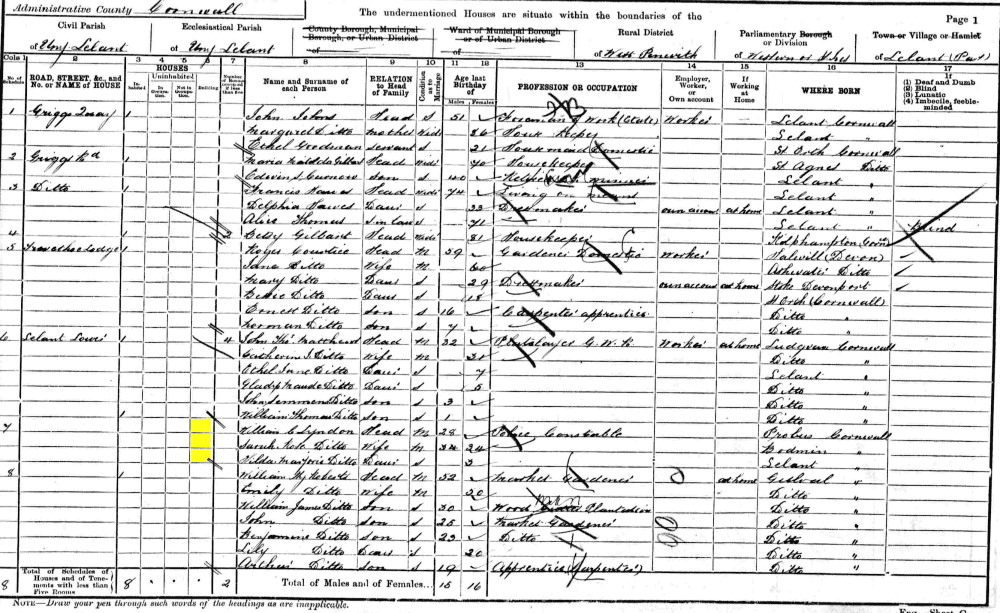 Administrative County Cornwall
The undermentioned Houses are situate within the boundaries of the
Page 1
Civil Parish
of Uny Lelant
Ecclesiastical Parish
of Uny Lelant
County Borough, Municipal Borough, or Urban District
of
Ward of Municipal Borough or of Urban District
of
Rural District
of West Penwith
Parliamentary Borough or Division
of Western or St Ives
Town or Village or Hamlet
of Lelant (Part)
Cols 1 2 3 4 5 6 7 8 9 10 11 12 13 14 15 16 17
No. of Schedule
ROAD, STREET, &c., and No. or NAME of HOUSE
HOUSES
Inhabited
Uninhabited
In Occupation
Not in Occupation
Building
Name and Surname of each Person
RELATION to Head of Family
Condition as to Marriage
Age last Birthday of
Males Females
PROFESSION OR OCCUPATION
Employer, Worker, or Own account
If Working at Home
WHERE BORN
(1) Deaf and Dumb
(2) Blind
(3) Lunatic
(4) Imbecile, feeble-minded
1 Griggs Quay 1 John Johns Head S 51 Foreman of Work (Estate) Worker Lelant Cornwall
Margaret Ditto Mother Wid 86 House Keeper Lelant "
Ethel Goodman Servant S 21 Housemaid Domestic St Erth Cornwall
2 Griggs Rd 1 Maria Matilda Head Wid 70 Housekeeper St Agnes Ditto
Edwin S Curnow Son S 40 Lelant "
3 Ditto 1 Francis Hawes Head Wid 74 Living on Lelant "
Delphia Hawes Daur S 33 Dressmaker own account at home Lelant "
Alice Thomas S in law S 71 Lelant " Blind
4 1 Betsy Gilbart Head Wid 81 Housekeeper
5 1 Roger Coustice Head M 59 Gardener Domestic Worker (Devon)
Jana Ditto Wife M 60 Ditto
Mary Ditto Daur S 29 Dressmaker own account at home Stoke Devonport
Bessie Ditto Daur S 18 St Erth (Cornwall)
Ernest Ditto Son S 16 Carpenter apprentice Ditto "
Norman Ditto Son S 7 Ditto "
6 Lelant Towns 1 4 John Thos Head M 32 Platelayer G.W.R. Worker at home Ludgvan Cornwall
Catherine J. Ditto Wife M 31 Ditto "
Ethel Jane Ditto Daur S 7 Lelant "
Gladys Maude Ditto Daur S 5 Ditto "
John Semmens Ditto Son S 3 Ditto "
William Thomas Ditto Son S 1 Ditto "
7 1 William C Lyndon Head M 28 Police Constable Probus Cornwall
Sarah Ditto Wife M 34 Bodmin "
Hilda Marjorie Ditto Daur S 3 Lelant "
8 1 William Hy Roberts Head M 52 Market Gardener at home Gulval "
Emily Ditto Wife M 50 Ditto "
William James Ditto Son S 30 Wood Plantation Ditto "
John Ditto Son S 25 Market Gardener Ditto "
Benjamin Ditto Son S 23 Ditto Ditto "
Lily Ditto Daur S 20 Ditto "
Archie Ditto Son S 19 Apprentice (Carpenter) Ditto "
8 Total of Schedules of Houses and of Tenements with less than Five Rooms 8 2 Total of Males and of Females... 15 16
NOTE—Draw your pen through such words of the headings as are inapplicable.